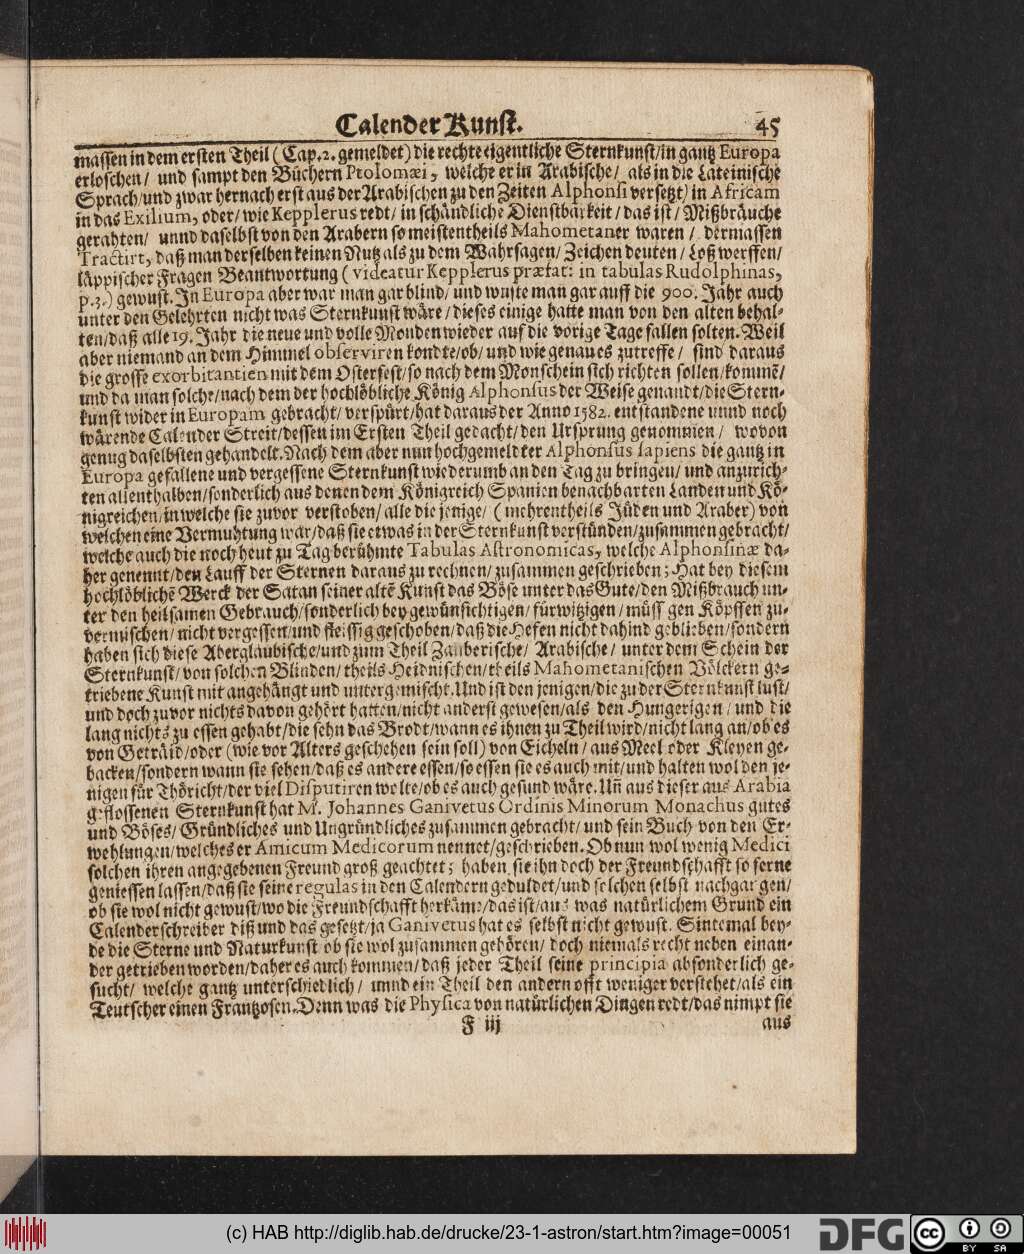 Calender Kunst. 45
massen in dem ersten Theil (Cap. 2. gemeldet) die rechte eigentliche Sternkunst/ in gantz Europa
erloschen/ und sampt den Büchern Ptolomæi, welche er in Arabische/ als in die Lateinische
Sprach/ und zwar hernach erst aus der Arabischen zu den Zeiten Alphonsi versetzt/ in Africam
in das Exilium, oder/ wie Kepplerus redt/ in schändliche Dienstbarkeit/ das ist/ Mißbräuche
gerahten/ unnd daselbst von den Arabern so meistentheils Mahometaner waren/ dermassen
Tractirt, daß man derselben keinen Nutz als zu dem Wahrsagen/ Zeichen deuten/ Loß werffen/
läppischer Fragen Beantwortung (videatur Kepplerus præfat: in tabulas Rudolphinas,
p. 3.) gewust. In Europa aber war man gar blind/ und wuste man gar auff die 900. Jahr auch
unter den Gelehrten nicht was Sternkunst wäre/ dieses einige hatte man von den alten behal-
ten/ daß alle 19. Jahr die neue und volle Monden wieder auf die vorige Tage fallen solten. Weil
aber niemand an dem Himmel observiren kondte/ ob/ und wie genau es zutreffe/ sind daraus
die grosse exorbitantien mit dem Osterfest/ so nach dem Monschein sich richten sollen/ kommē/
und da man solche/ nach dem der hochlöbliche König Alphonsus der Weise genandt/ die Stern-
kunst wider in Europam gebracht/ verspürt/ hat daraus der Anno 1582. entstandene unnd noch
wärende Calender Streit/ dessen im Ersten Theil gedacht/ den Ursprung genommen/ wovon
genug daselbsten gehandelt. Nach dem aber nun hochgemeldter Alphonsus sapiens die gantz in
Europa gefallene und vergessene Sternkunst wiederumb an den Tag zu bringen/ und anzurich-
ten allenthalben/ sonderlich aus denen dem Königreich Spanien benachbarten Landen und Kö-
nigreichen/ in welche sie zuvor verstoben/ alle die jenige/ (mehrentheils Jüden und Araber) von
welchen eine Vermuhtung war/ daß sie etwas in der Sternkunst verstünden/ zusammen gebracht/
welche auch die noch heut zu Tag berühmte Tabulas Astronomicas, welche Alphonsinæ da-
her genennt/ den Lauff der Sternen daraus zu rechnen/ zusammen geschrieben; Hat bey diesem
hochlöblichē Werck der Satan seiner altē Kunst das Böse unter das Gute/ den Mißbrauch un-
ter den heilsamen Gebrauch/ sonderlich bey gewünsichtigen/ fürwitzigen/ müssigen Köpffen zu-
vermischen/ nicht vergessen/ und fleissig geschoben/ daß die Hefen nicht dahind geblieben/ sondern
haben sich diese Aberglaubische/ und zum Theil Zauberische/ Arabische/ unter dem Schein der
Sternkunst/ von solchen Blinden/ theils Heidnischen/ theils Mahometanischen Völckern ge-
triebene Kunst mit angehängt und untergemischt. Und ist den jenigen/ die zu der Sternkunst lust/
und doch zuvor nichts davon gehört hatten/ nicht anderst gewesen/ als den Hungerigen/ und die
lang nichts zu essen gehabt/ die sehn das Brodt/ wann es ihnen zu Theil wird/ nicht lang an/ ob es
von Geträid/ oder (wie vor Alters geschehen sein soll) von Eicheln/ aus Meel oder Kleyen ge-
backen/ sondern wann sie sehen/ daß es andere essen/ so essen sie es auch mit/ und halten wol den je-
nigen für Thöricht/ der viel Disputiren wolte/ ob es auch gesund wäre. Uñ aus dieser aus Arabia
geflossenen Sternkunst hat M. Johannes Ganivetus Ordinis Minorum Monachus gutes
und Böses/ Gründliches und Ungründliches zusammen gebracht/ und sein Buch von den Er-
wehlungen/ welches er Amicum Medicorum nennet/ geschrieben. Ob nun wol wenig Medici
solchen ihren angegebenen Freund groß geachtet; haben sie ihn doch der Freundschafft so ferne
geniessen lassen/ daß sie seine regulas in den Calendern geduldet/ und solchen selbst nachgangen/
ob sie wol nicht gewust/ wo die Freundschafft herkäme/ das ist/ aus was natürlichem Grund ein
Calenderschreiber diß und das gesetzt/ ja Ganivetus hat es selbst nicht gewust. Sintemal bey-
de die Sterne und Naturkunst ob sie wol zusammen gehören/ doch niemals recht neben einan-
der getrieben worden/ daher es auch kommen/ daß jeder Theil seine principia absonderlich ge-
sucht/ welche gantz unterschiedlich/ unnd ein Theil den andern offt weniger verstehet/ als ein
Teutscher einen Frantzosen. Denn was die Physica von natürlichen Dingen redt/ das nimpt sie
F iij aus
(c) HAB http://diglib.hab.de/drucke/23-1-astron/start.htm?image=00051 DFG cc BY SA